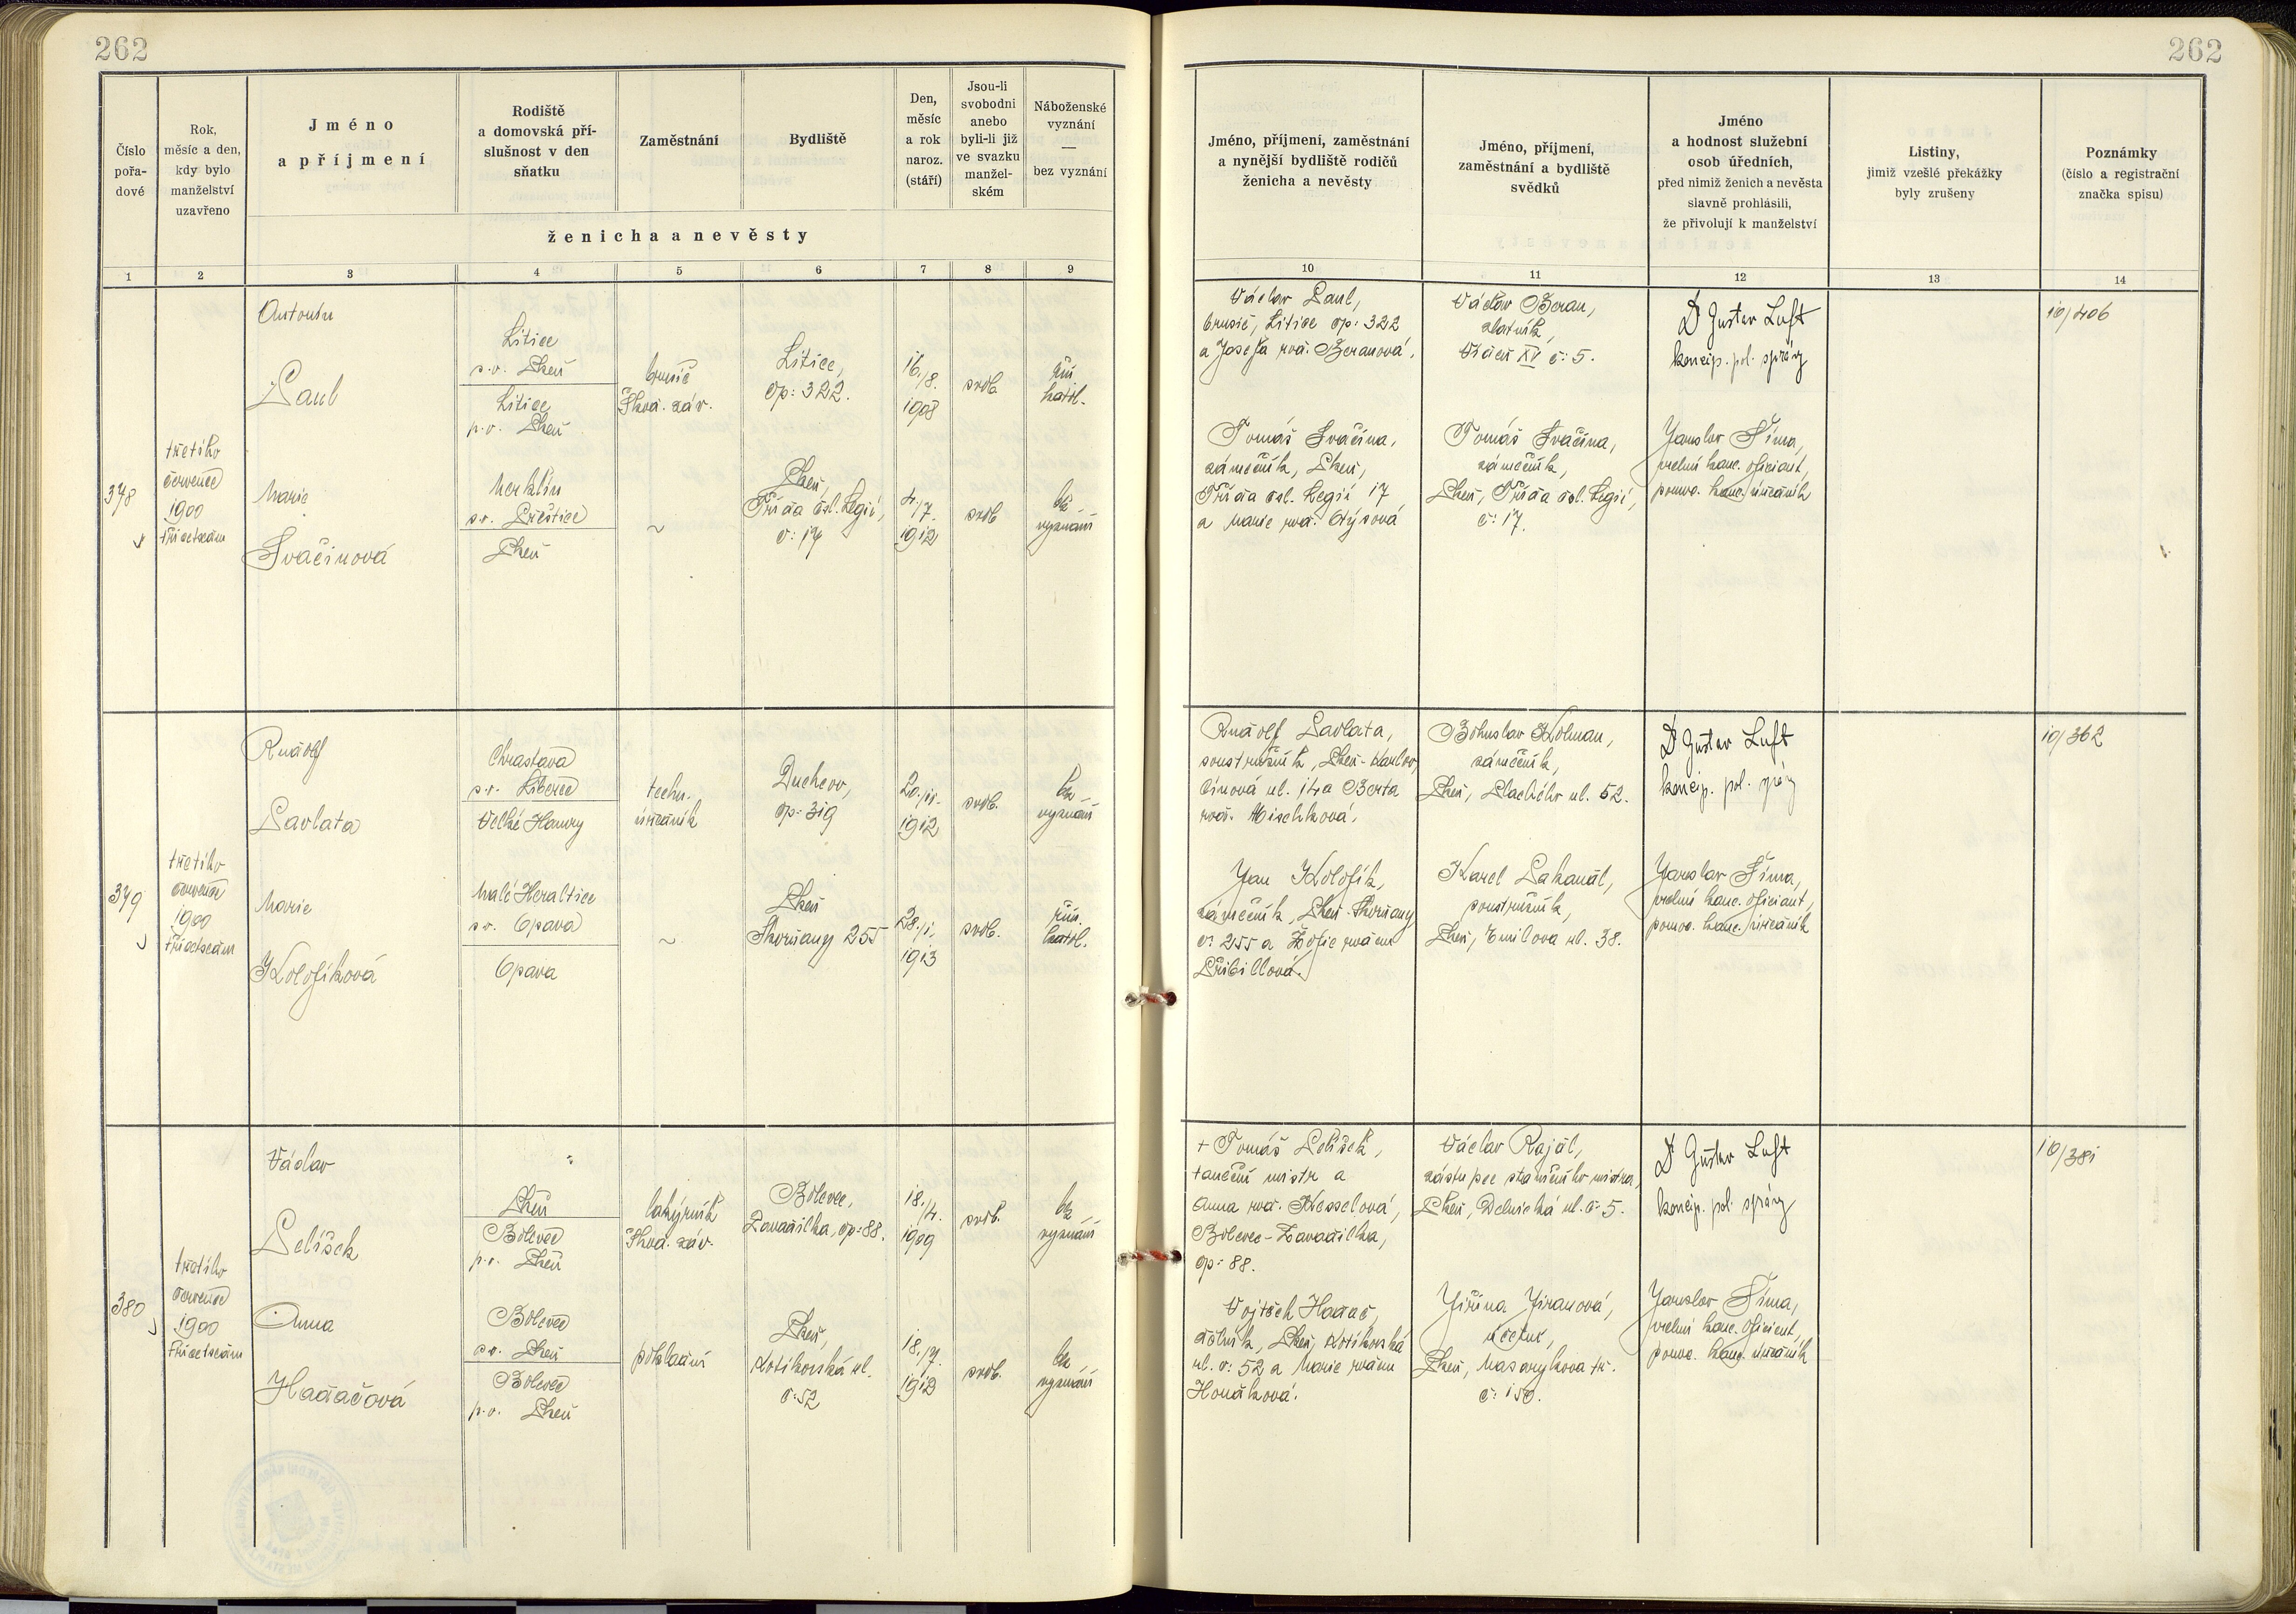 262
262
Číslo
pořa-
dové
Rok,
měsíc a den,
kdy bylo
manželství
uzavřeno
Jméno
a příjmení
Rodiště
a domovská pří-
slušnost v den
sňatku
Zaměstnání
Bydliště
Den,
měsíc
a rok
naroz.
(stáří)
Jsou-li
svobodni
anebo
byli-li již
ve svazku
manžel-
ském
Náboženské
vyznání
—
bez vyznání
ženicha a nevěsty
Jméno, příjmení, zaměstnání
a nynější bydliště rodičů
ženicha a nevěsty
Jméno, příjmení,
zaměstnání a bydliště
svědků
Jméno
a hodnost služební
osob úředních,
před nimiž ženich a nevěsta
slavně prohlásili,
že přivolují k manželství
Listiny,
jimiž vzešlé překážky
byly zrušeny
Poznámky
(číslo a registrační
značka spisu)
1 2 3 4 5 6 7 8 9 10 11 12 13 14
378
třetího
července
1900
třicetsedm
Antonín
Paul
Litice
s.o. Plzeň
Litice
p.o. Plzeň
brusič
Škod. záv.
Litice,
čp: 322.
16./8.
1908
svob.
řím.
kath.
Marie
Svačinová
Merklín
s.o. Přeštice
Plzeň
~
Plzeň,
Třída čsl. Legií,
č: 17
4./7.
1912
svob
bez
vyznání
Václav Paul,
brusič, Litice čp: 322
a Josefa roz. Beranová.
Tomáš Svačina,
zámečník, Plzeň,
Třída čsl. Legií 17
a Marie roz.
Václav Beran,
zlatník,
Vídeň XV č: 5.
Tomáš Svačina,
zámečník,
Plzeň, Třída čsl. Legií,
č: 17.
Dr Gustav Luft
koncip. pol. správy
Jaroslav Šíma,
vrchní kanc. oficiant,
pomoc. kanc. úředník
10/406
379
třetího
července
1900
třicetsedm
Rudolf
Pavlata
Chrastava
s.o. Liberec
Velké Hamry
techn.
úředník
Duchcov,
čp: 319
20./11.
1912
svob.
bez
vyznání
Marie
Kolofíková
Malé Heraltice
s.o. Opava
Opava
~
Plzeň
Skvrňany 255
28./1.
1913
svob.
řím.
kath.
Rudolf Pavlata,
soustružník, Plzeň-Karlov,
ul. 14 a Berta
roz. Mischková.
Jan Kolofík,
zámečník, Plzeň-Skvrňany
č: 255 a Žofie rozem
Přibillová.
Bohuslav Kolman,
zámečník,
Plzeň, Plachého ul. 52.
Karel
soustružník,
Plzeň, Emilova ul. 38.
Dr Gustav Luft
koncip. pol. správy
Jaroslav Šíma,
vrchní kanc. oficiant,
pomoc. kanc. úředník
10/362
380
třetího
července
1900
třicetsedm
Václav
Pelíšek
Plzeň
Bolevec
p.o. Plzeň
lakýrník
Škod. záv.
Bolevec,
Zavadilka, čp: 88.
18./4.
1909
svob.
bez
vyznání
Anna
Hadačová
Bolevec
s.o. Plzeň
Bolevec
p.o. Plzeň
pokladní
Plzeň,
Kotíkovská ul.
č: 52
18./7.
1912
svob.
bez
vyznání
+ Tomáš Pelíšek,
taneční mistr a
Anna roz. Hesselová,
Bolevec-Zavadilka,
čp: 88.
Vojtěch Hadač,
dělník, Plzeň, Kotíkovská
ul. č: 52 a Marie rozem
Honzíková.
Václav Rajál,
zástupce staničního mistra,
Plzeň, Dělnická ul. č: 5.
Jiřina Jiranová,
účetní,
Plzeň, Masarykova tř.
č: 150.
Dr Gustav Luft
koncip. pol. správy
Jaroslav Šíma,
vrchní kanc. oficient,
pomoc. kanc. úředník
10/381